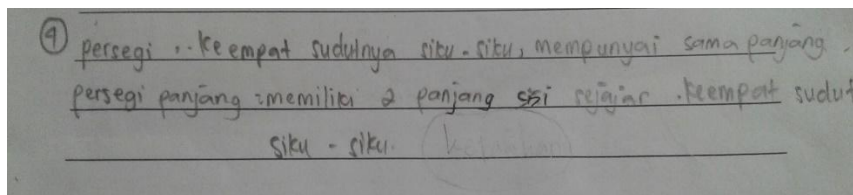 ④ persegi .. Keempat sudutnya siku - siku, mempunyai sama panjang.
persegi panjang : memiliki 2 panjang sisi sejajar . Keempat sudut
siku - siku.